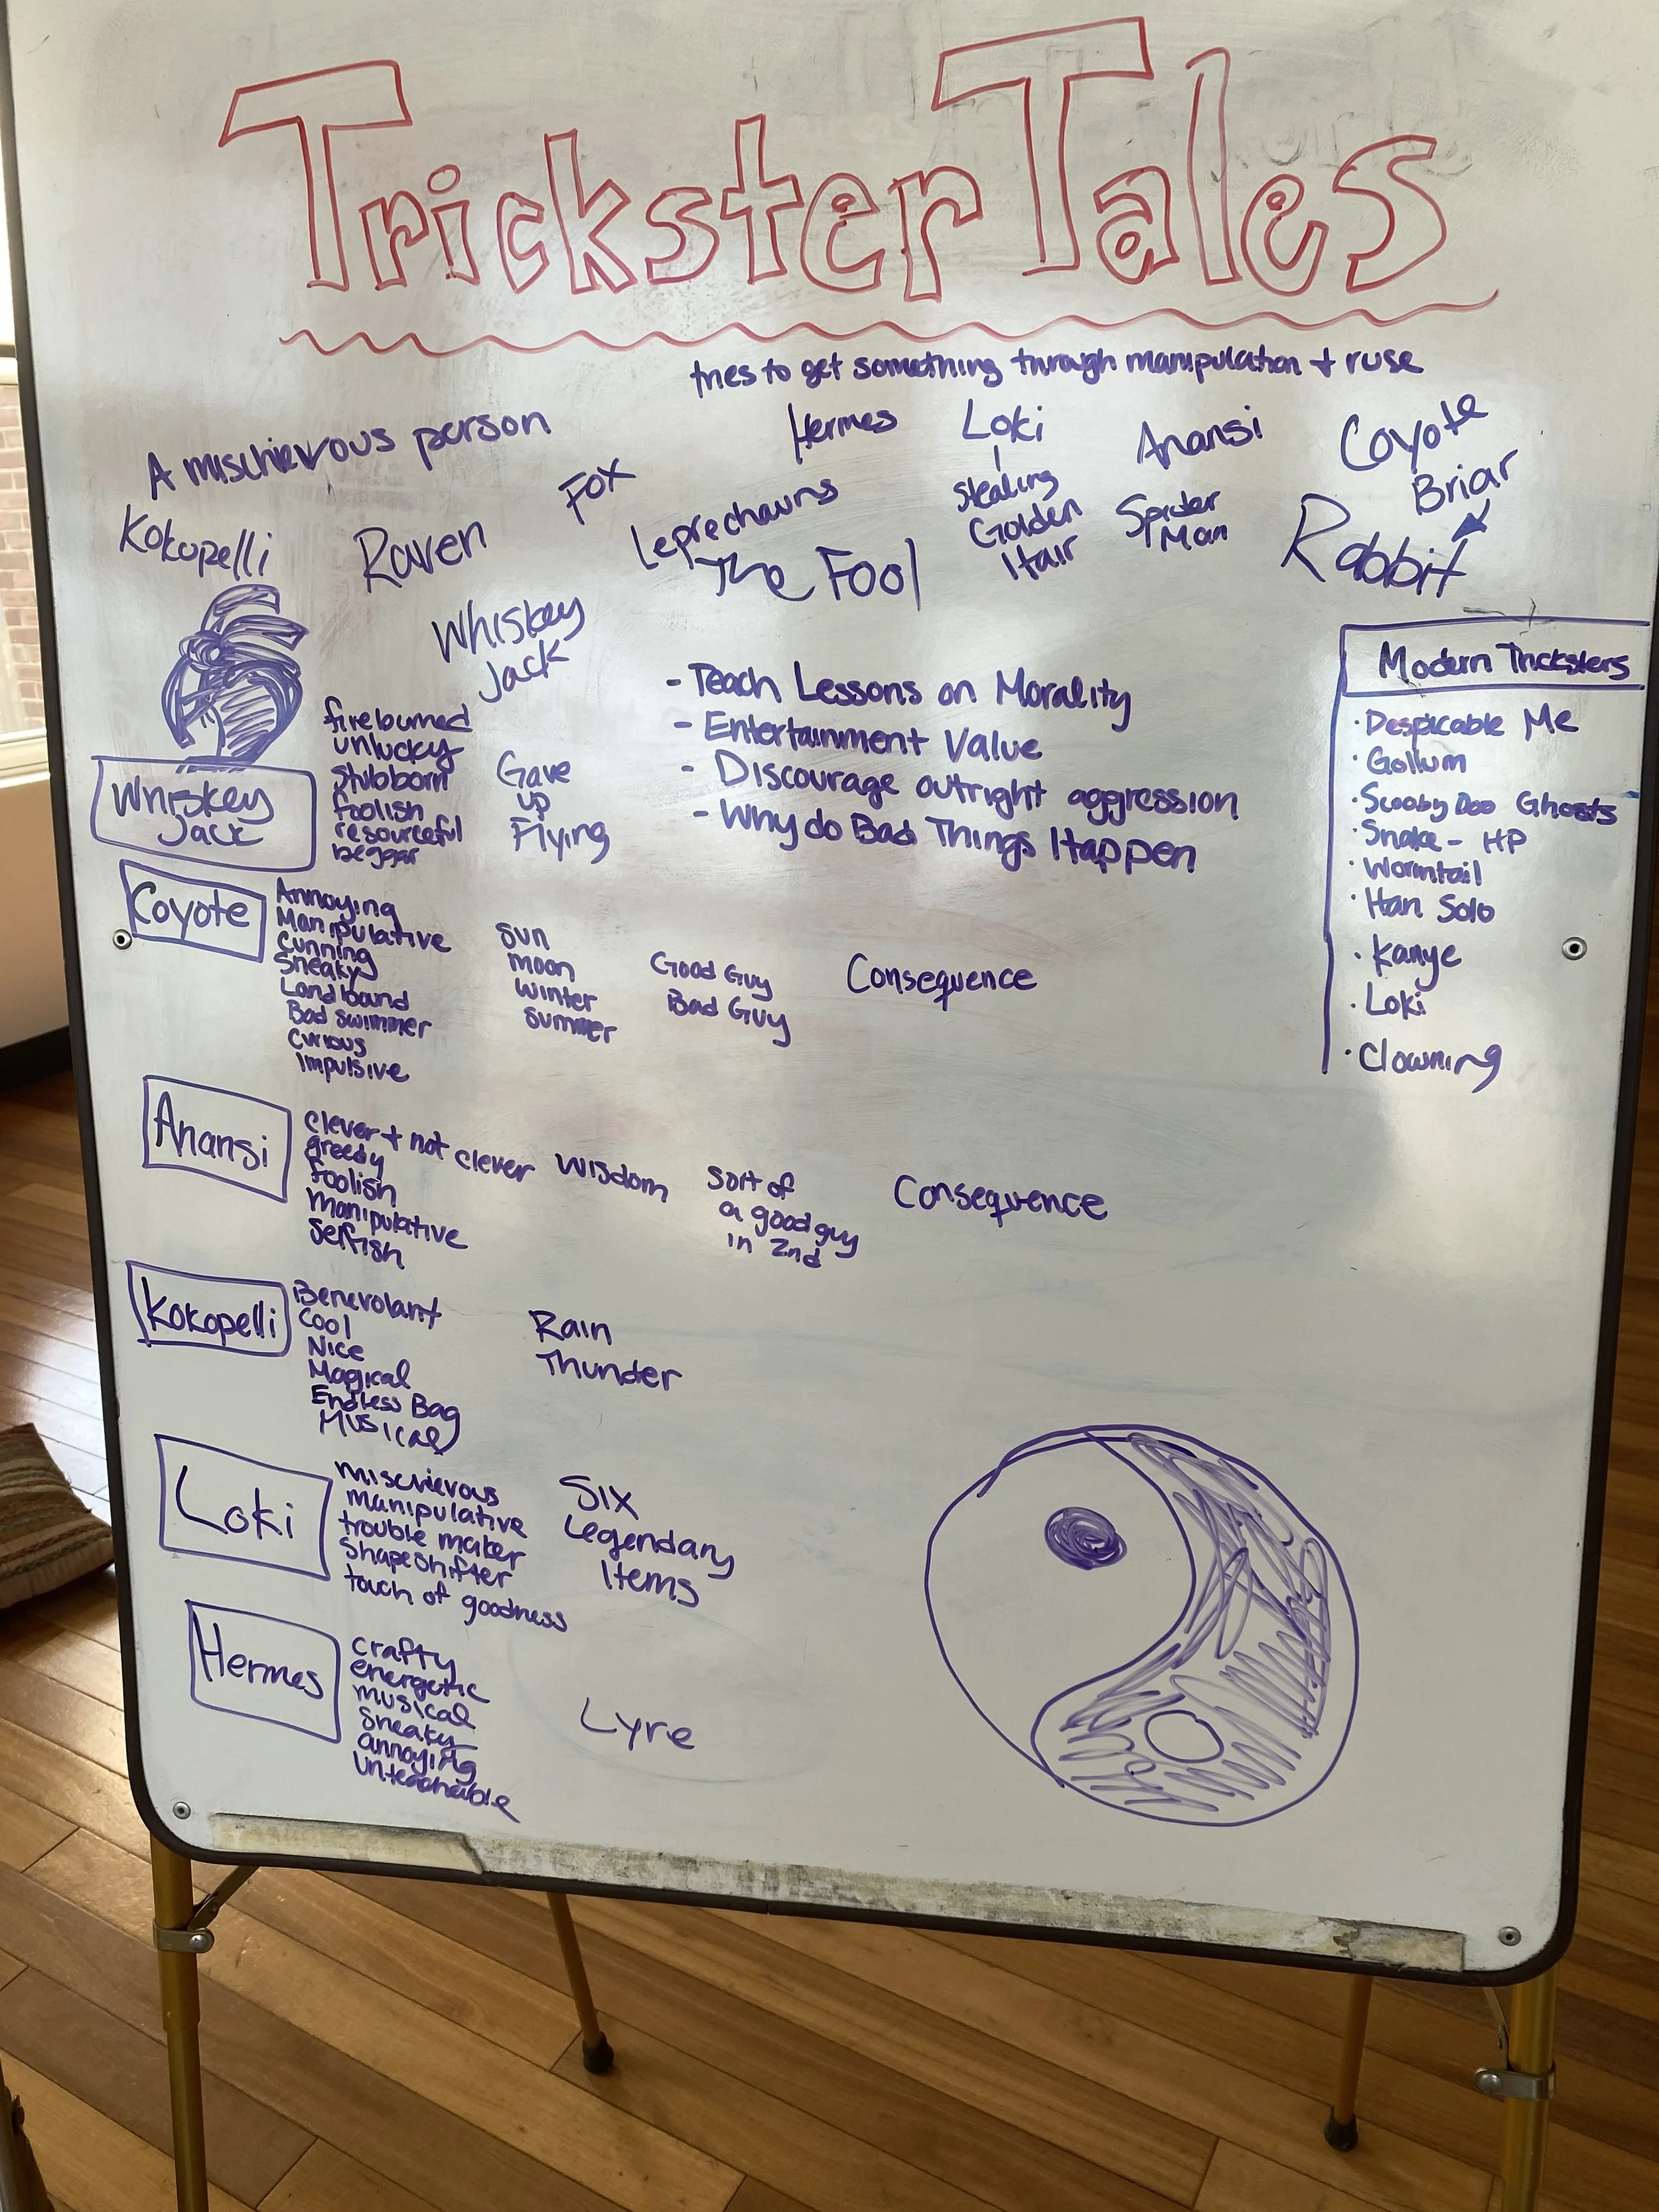 Trickster Tales
tries to get something through manipulation + ruse
A mischievous person
Hermes
Loki
Stealing
Golden
Hair
Anansi
Spider
Man
Coyote
Briar
Rabbit
Kokopelli
Raven
Fox
Leprechauns
The Fool
Whiskey
Jack
- Teach Lessons on Morality
- Entertainment Value
- Discourage outright aggression
- Why do Bad Things Happen
Modern Tricksters
· Despicable Me
· Gollum
· Scooby Doo Ghosts
· Snake - HP
· Wormtail
· Han Solo
· Kanye
· Loki
· Clowning
Whiskey
Jack
fireburned
unlucky
Stubborn
foolish
resourceful
beggar
Gave
up
Flying
Coyote
Annoying
Manipulative
Cunning
Sneaky
Landbound
Bad swimmer
Curious
Impulsive
Sun
Moon
Winter
Summer
Good Guy
Bad Guy
Consequence
Anansi
Clever + not clever
greedy
foolish
Manipulative
Selfish
Wisdom
Sort of
a good guy
in 2nd
Consequence
Kokopelli
Benevolant
Cool
Nice
Magical
Endless Bag
Musical
Rain
Thunder
Loki
mischievous
manipulative
trouble maker
Shapeshifter
touch of goodness
Six
Legendary
Items
Hermes
crafty
energetic
musical
sneaky
annoying
Unteachable
Lyre